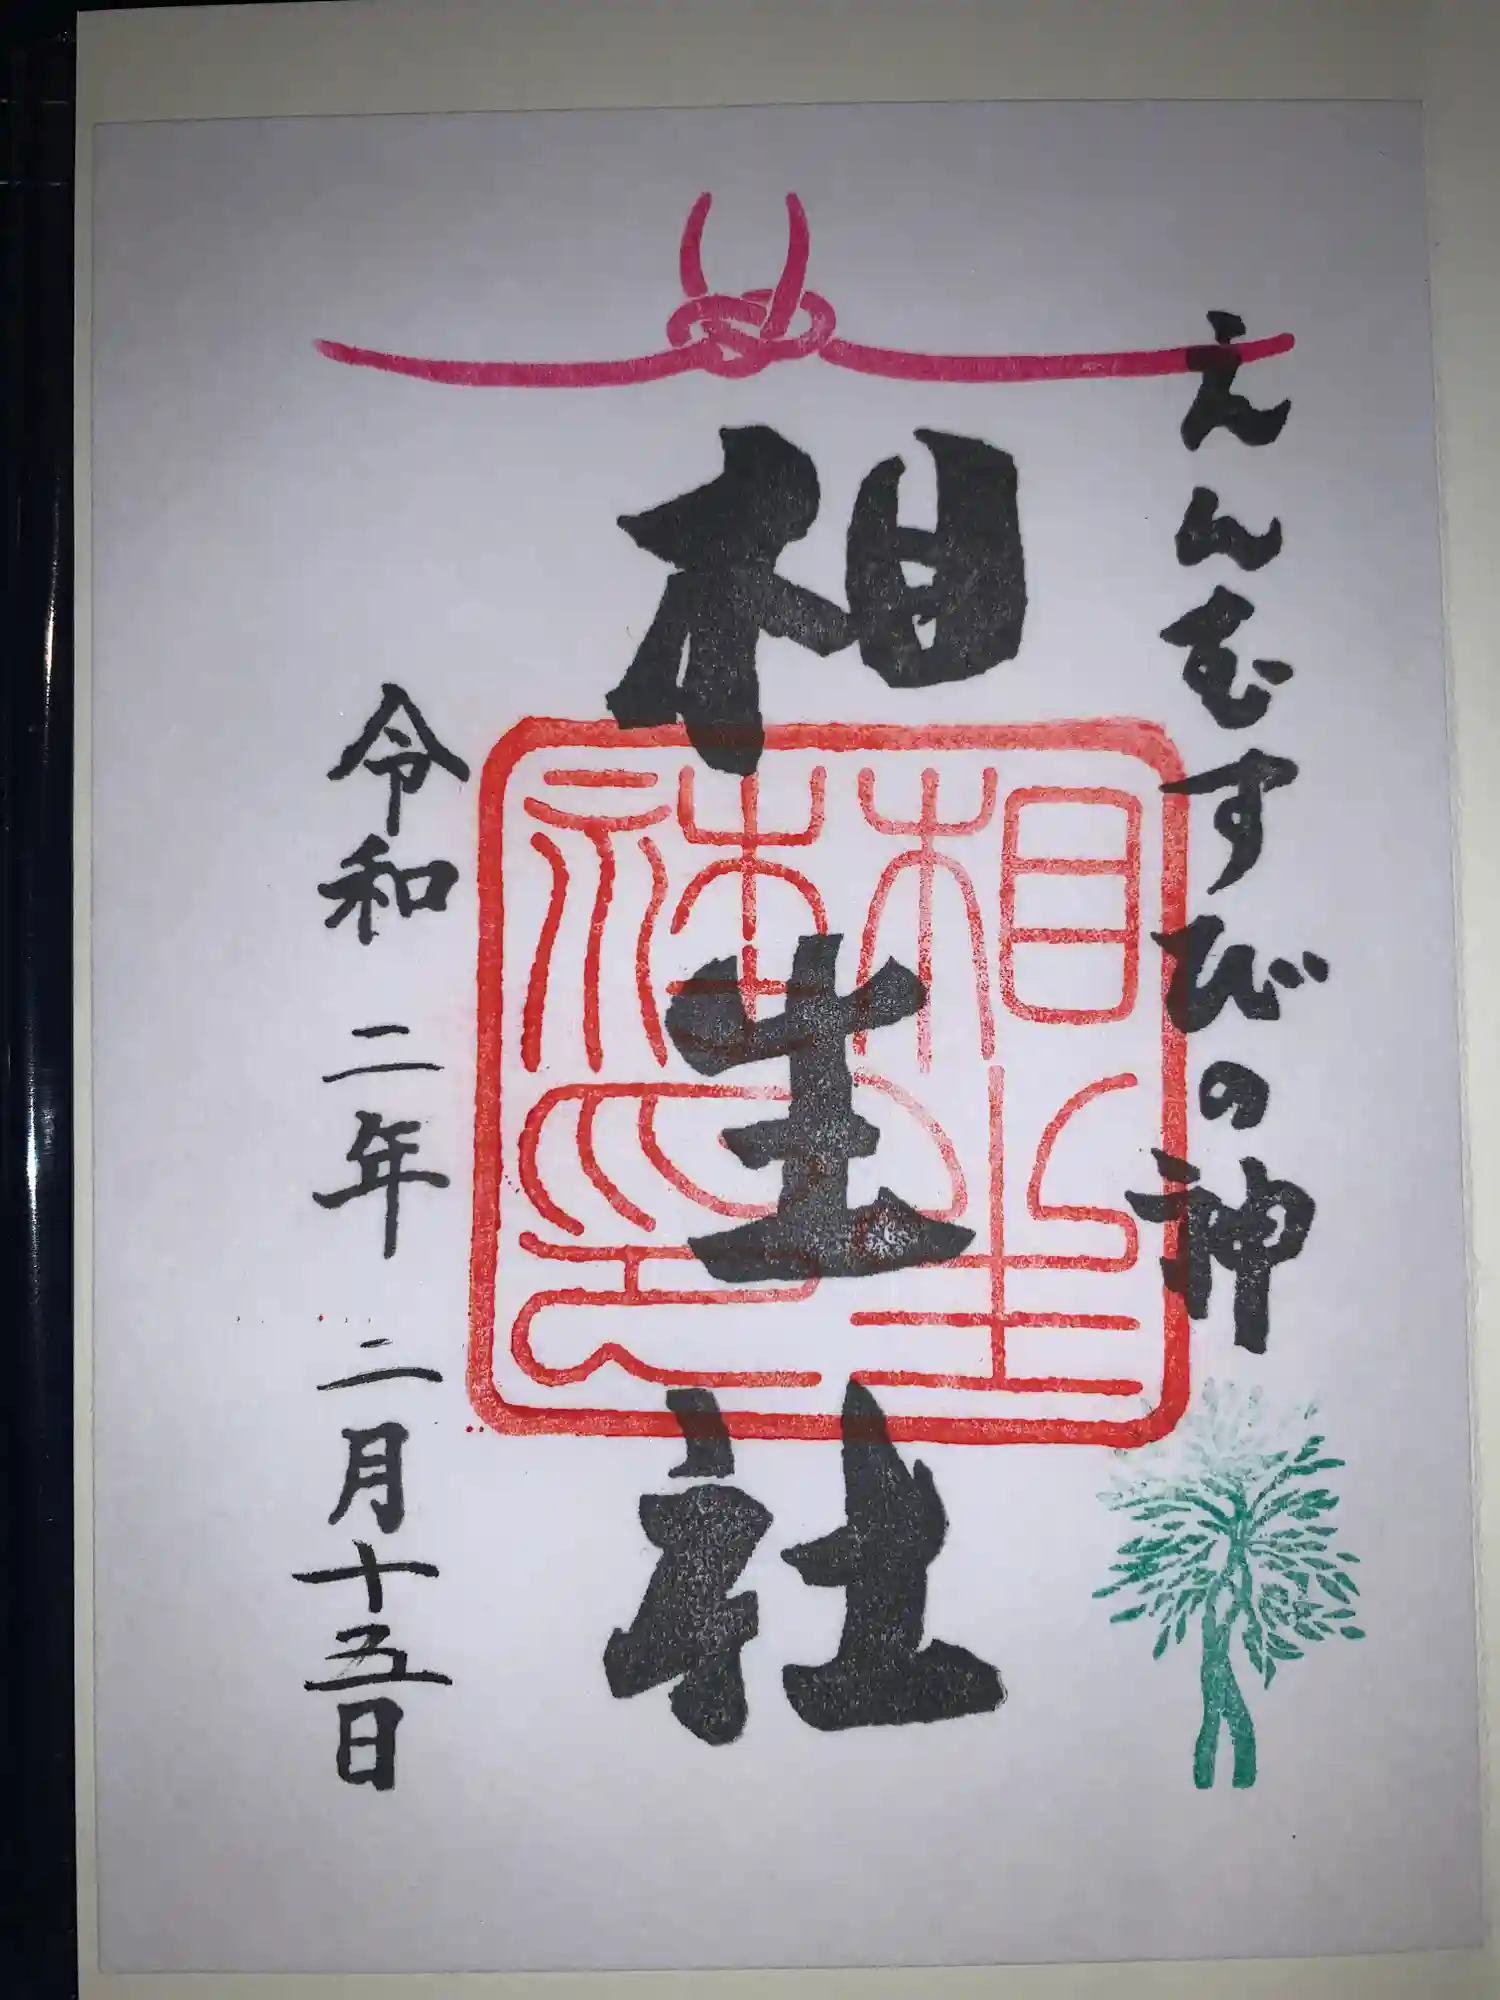 えんむすびの神
相生社
相生社之印
令和二年二月十五日